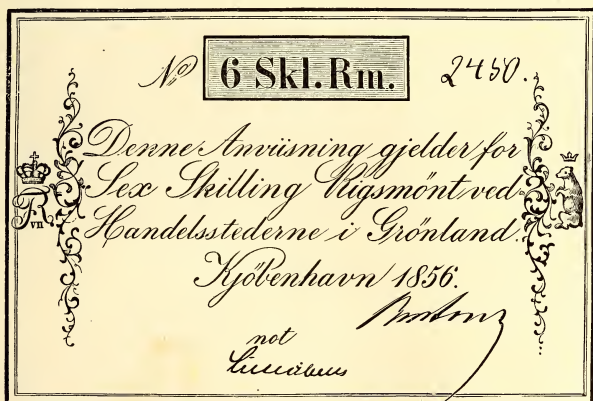 No 6 Skl. Rm. 2450.
Denne Anviisning gjelder for
Sex Skilling Rigsmönt ved
Handelsstederne i Grönland.
Kjöbenhavn 1856.
not
F
R
VII